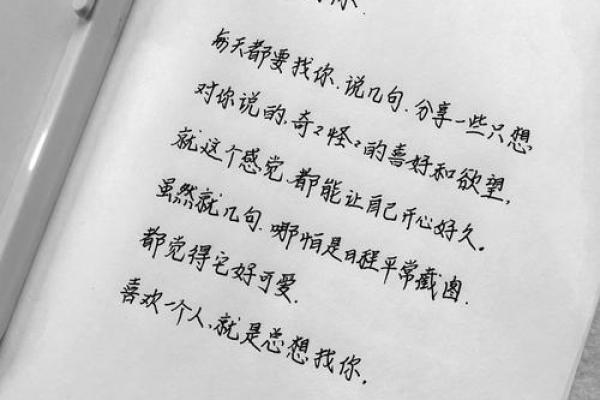 你.
每天都要找你.说几句.分享一些只想
对你说的,奇々怪々的喜好和欲望,
就这个感觉.都能让自己开心好久。
虽然就几句.哪怕是日程平常截图.
都觉得它好可爱.
喜欢一个人,就是总想找你.